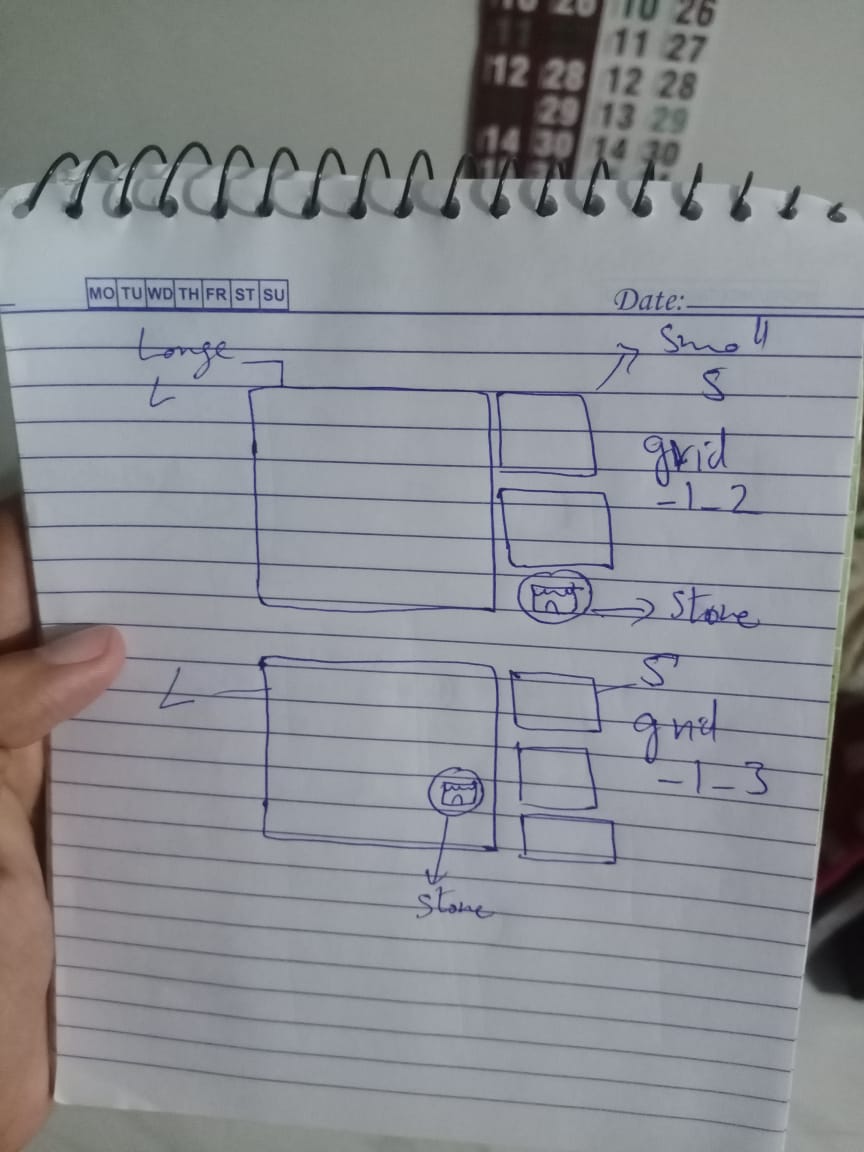 10 26 10 26
11 11 27
12 28 12 28
29 13 29
14 30 14 30
MO TU WD TH FR ST SU
Date:
Large
Small
L
S
grid
-1_2
Store
L
S
grid
-1_3
Store